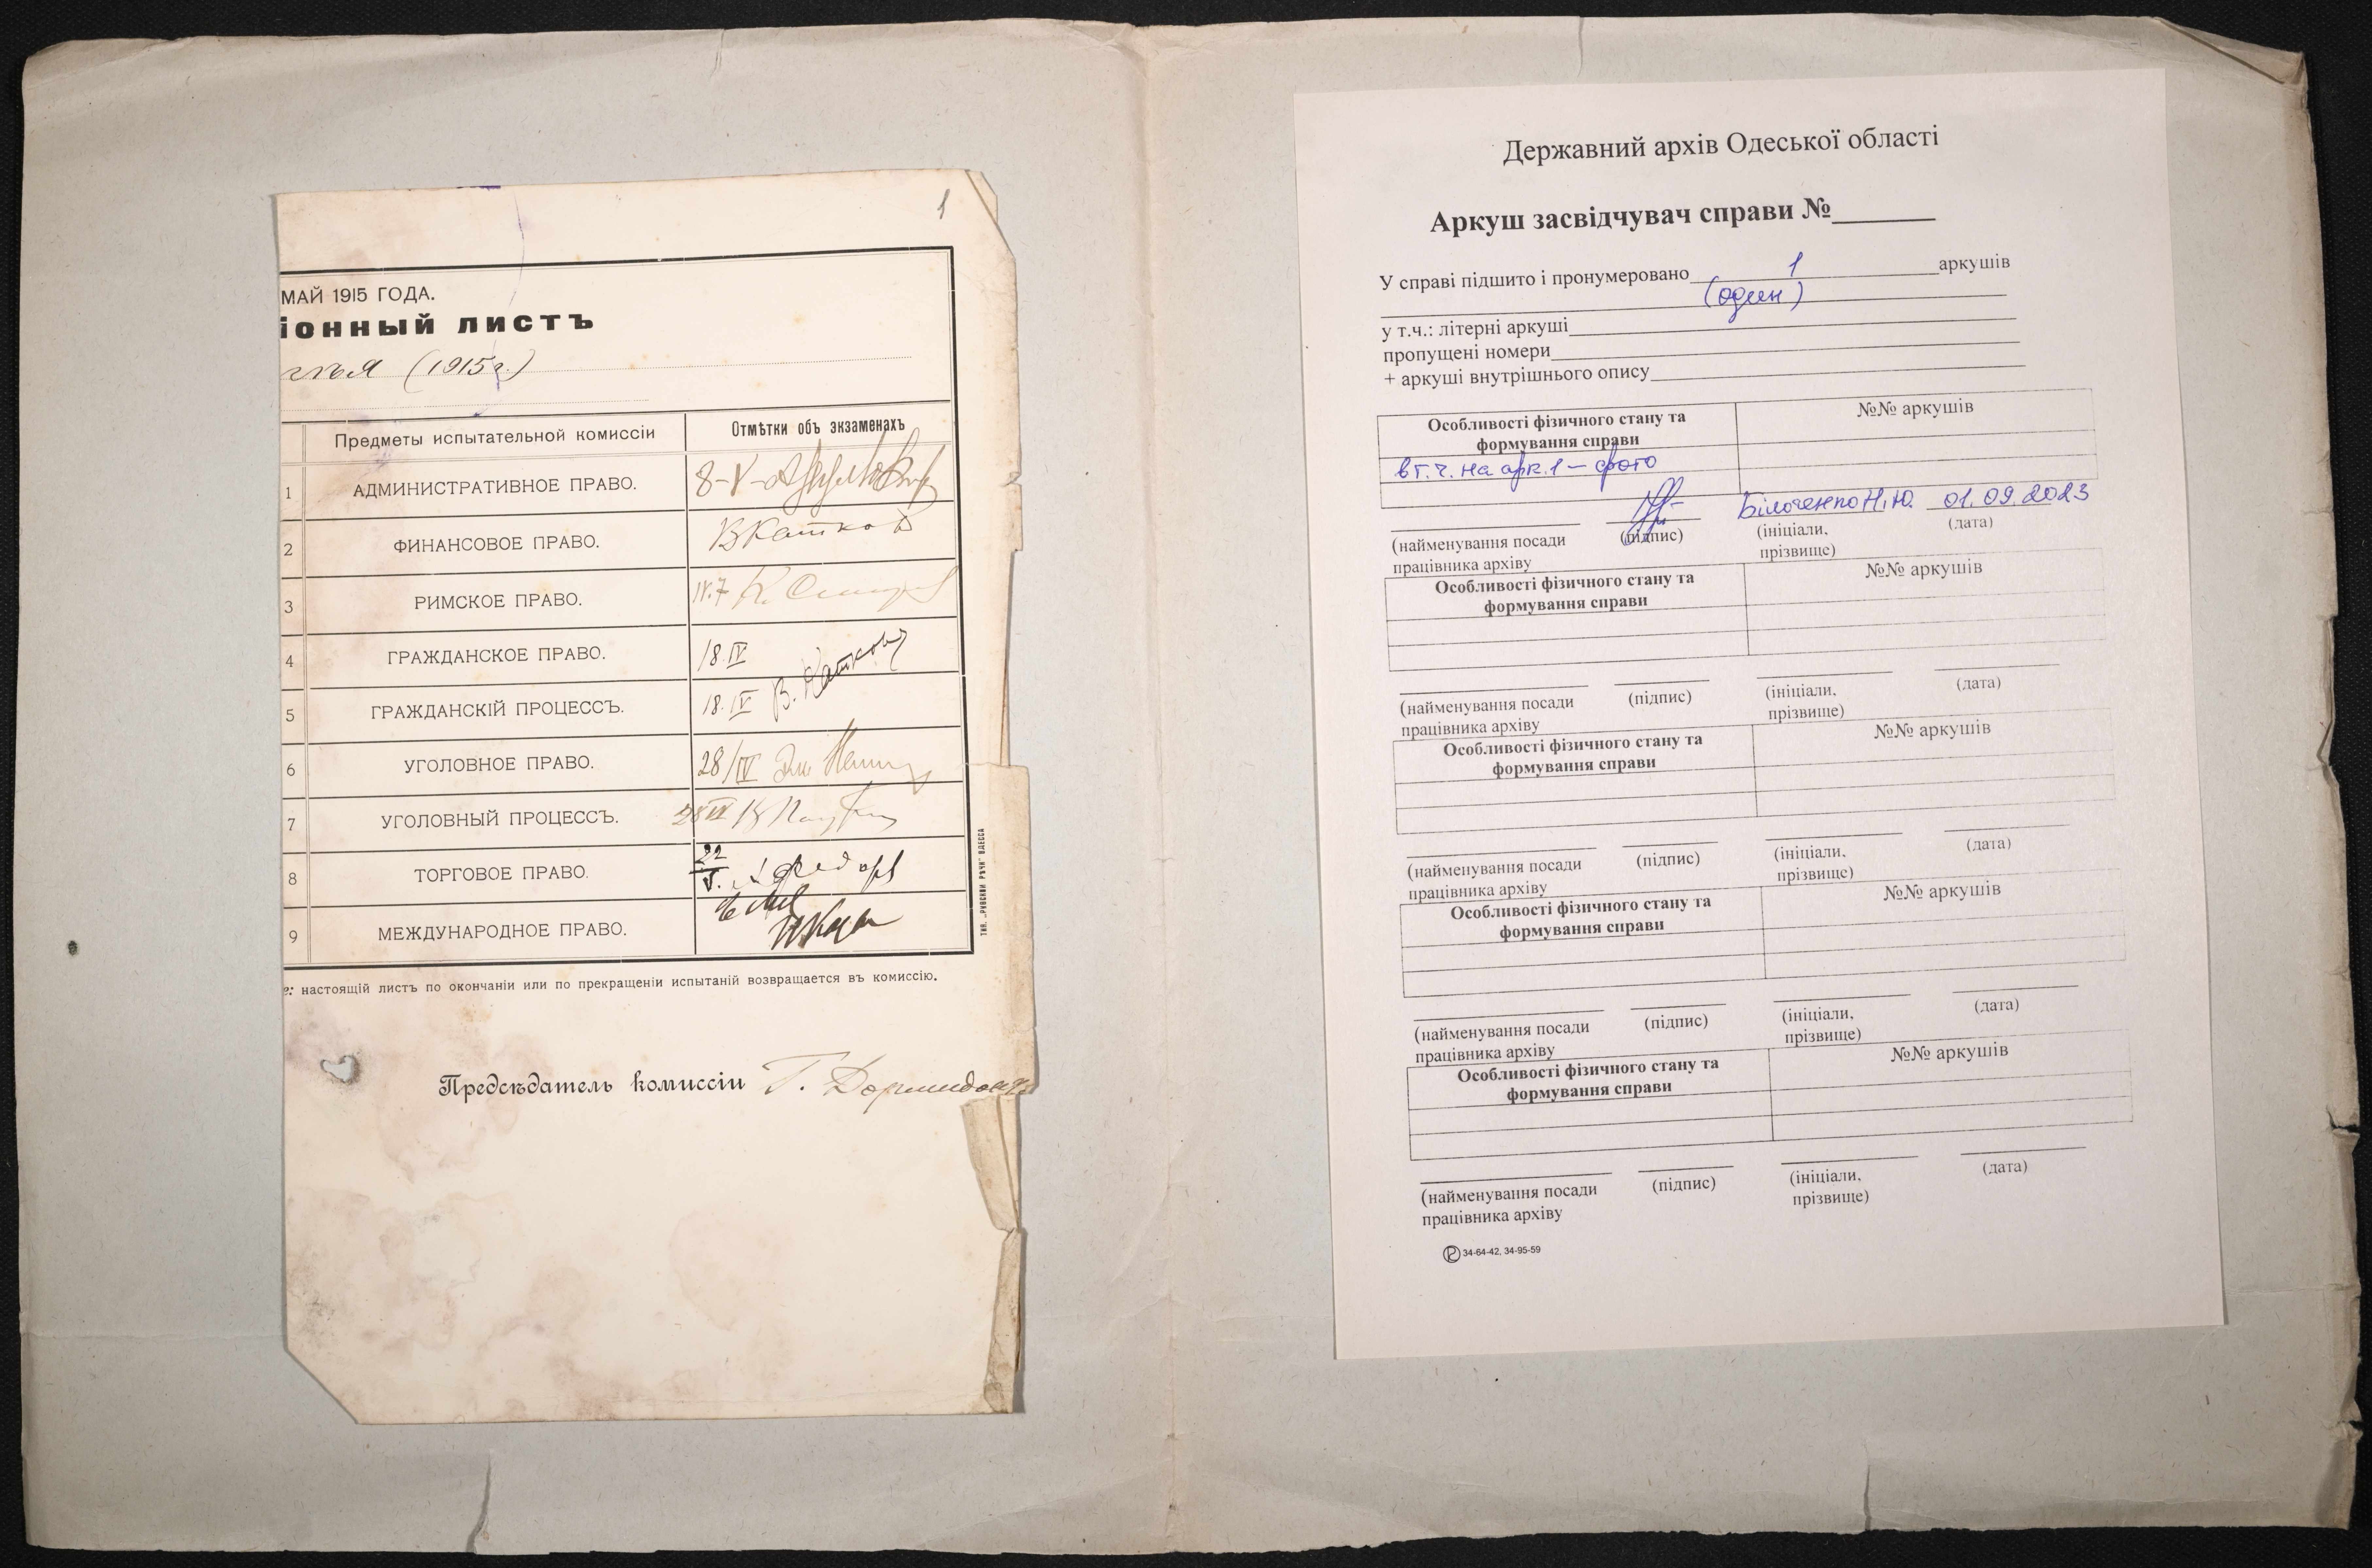 1
МАЙ 1915 ГОДА.
іонный листъ
(1915г.)
Предметы испытательной комиссіи Отмѣтки объ экзаменахъ
1 АДМИНИСТРАТИВНОЕ ПРАВО. 8-V-
2 ФИНАНСОВОЕ ПРАВО. В Катковъ
3 РИМСКОЕ ПРАВО. IV.7
4 ГРАЖДАНСКОЕ ПРАВО. 18.IV
5 ГРАЖДАНСКІЙ ПРОЦЕССЪ. 18.IV В. Катковъ
6 УГОЛОВНОЕ ПРАВО. 28/IV
7 УГОЛОВНЫЙ ПРОЦЕССЪ.
8 ТОРГОВОЕ ПРАВО. 22/V.
9 МЕЖДУНАРОДНОЕ ПРАВО.
е: настоящій листъ по окончаніи или по прекращеніи испытаній возвращается въ комиссію.
ТИП. „РУССКОЙ РѢЧИ" ОДЕССА
Предсѣдатель комиссіи Г.
Державний архів Одеської області
Аркуш засвідчувач справи №
У справі підшито і пронумеровано 1 аркушів
(один)
у т.ч.: літерні аркуші
пропущені номери
+ аркуші внутрішнього опису
Особливості фізичного стану та формування справи №№ аркушів
в т.ч. на арк.1 – фото
Білоченко Н.Ю. 01.09.2023
(найменування посади (підпис) (ініціали, (дата)
працівника архіву прізвище)
Особливості фізичного стану та №№ аркушів
формування справи
(найменування посади (підпис) (ініціали, (дата)
працівника архіву прізвище)
Особливості фізичного стану та №№ аркушів
формування справи
(найменування посади (підпис) (ініціали, (дата)
працівника архіву прізвище)
Особливості фізичного стану та №№ аркушів
формування справи
(найменування посади (підпис) (ініціали, (дата)
працівника архіву прізвище)
Особливості фізичного стану та №№ аркушів
формування справи
(найменування посади (підпис) (ініціали, (дата)
працівника архіву прізвище)
34-64-42, 34-95-59